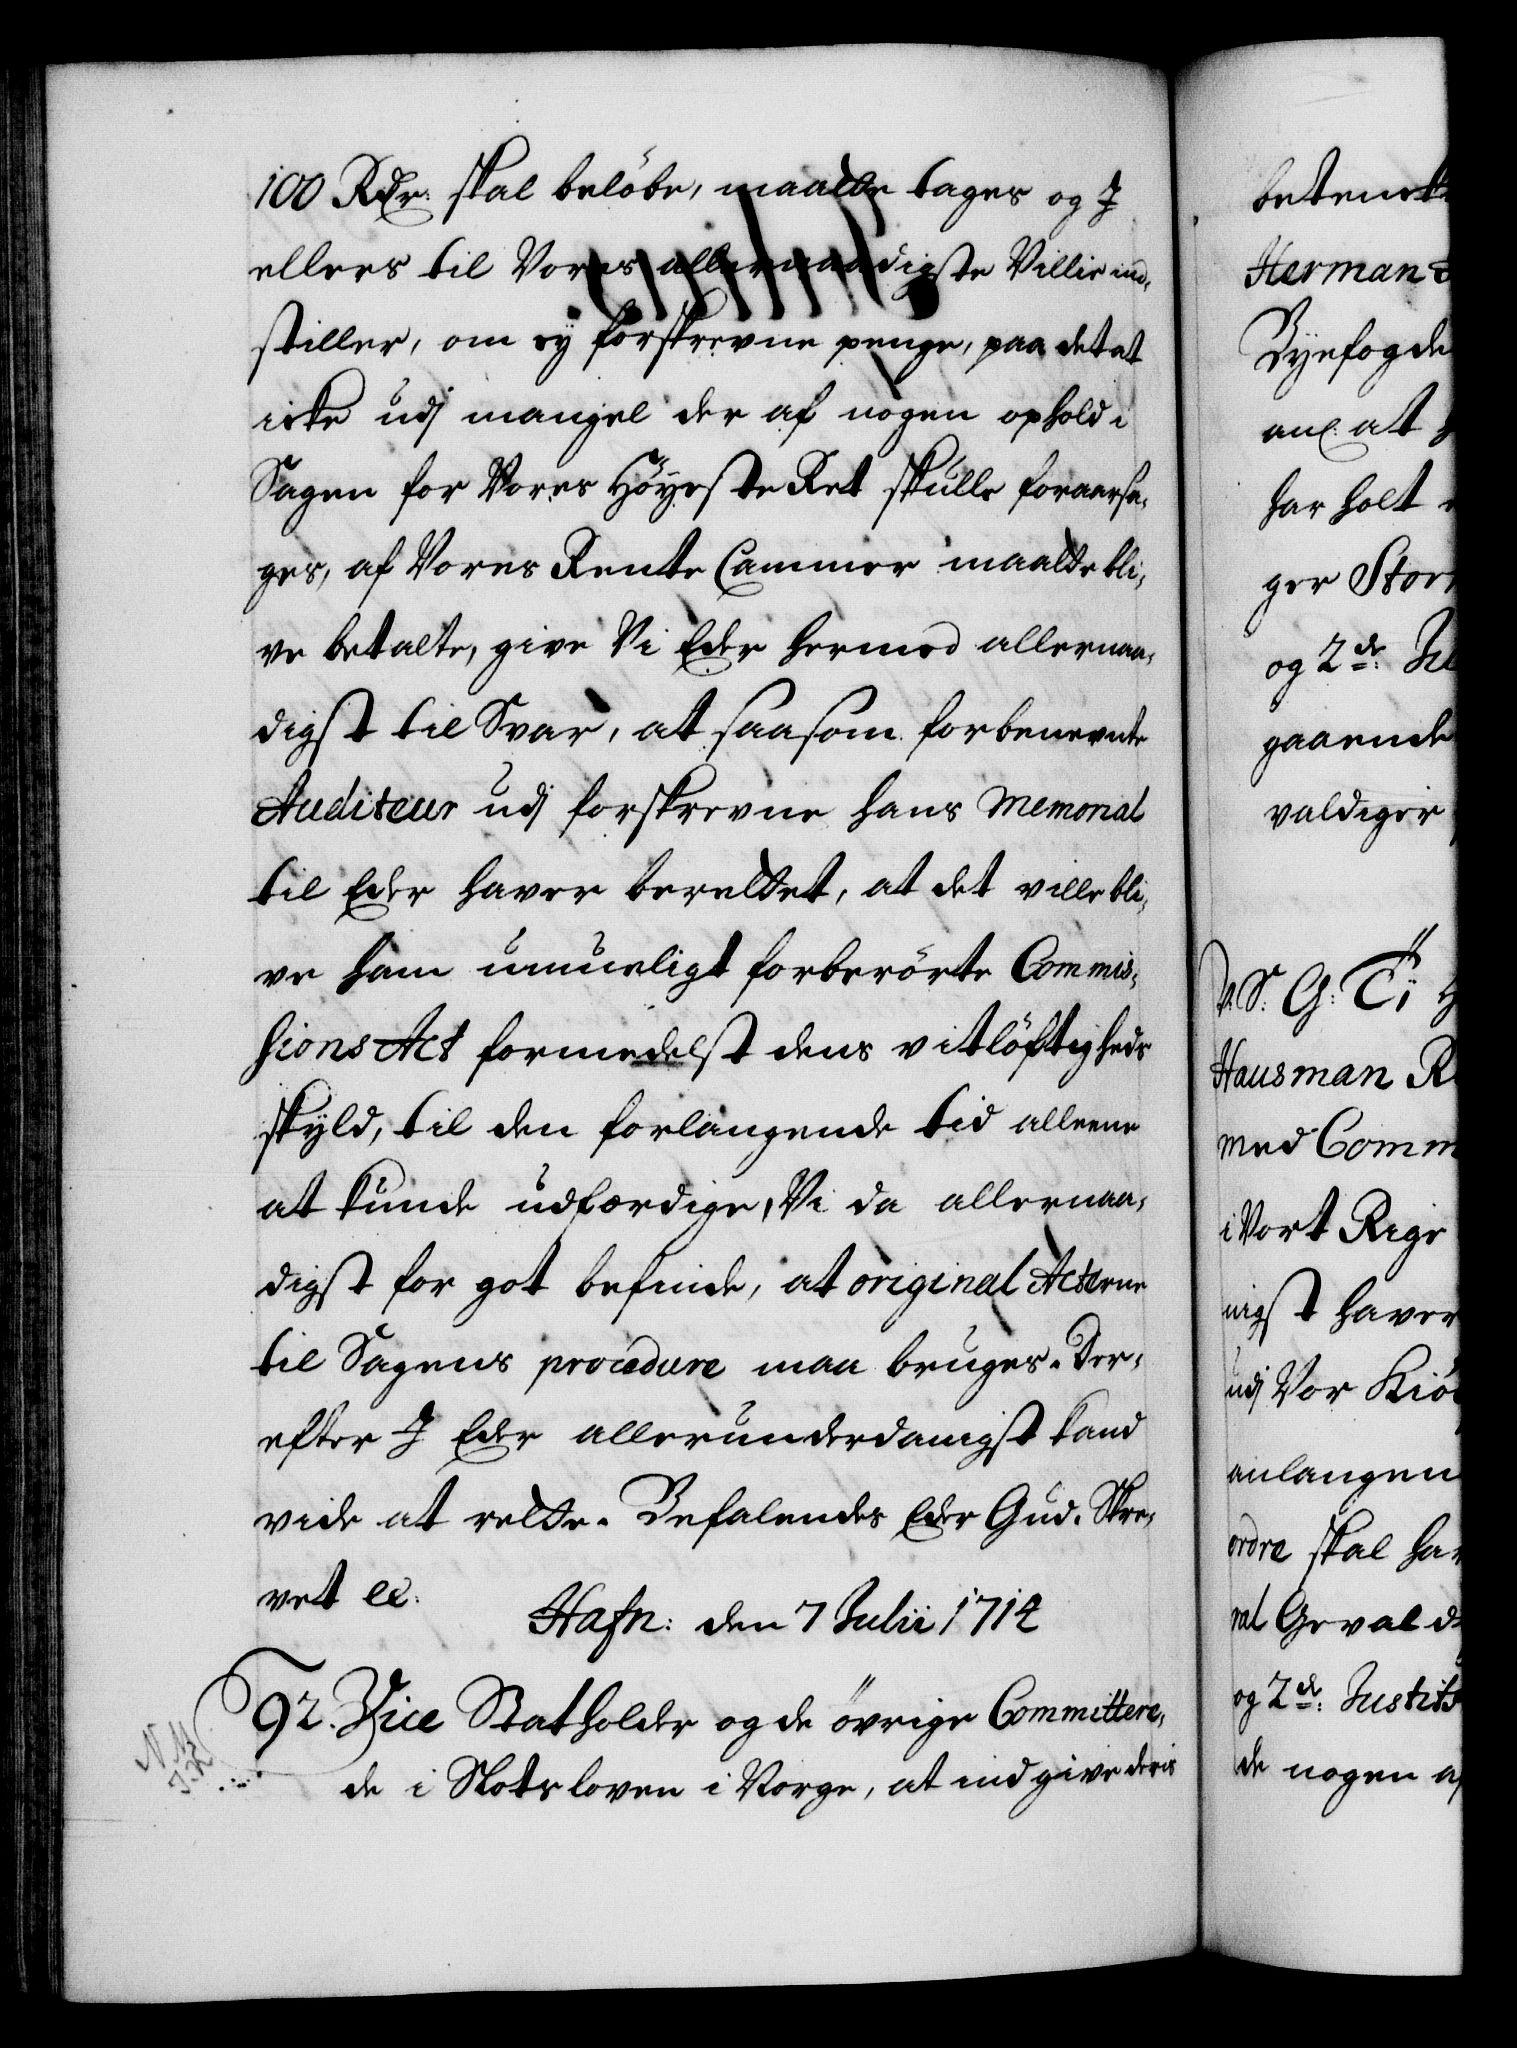 100 Rdr: skal beløbe, maatte tages og J
ellers til Vores allernaadigste Villie ind,
stiller, om ey forskrevne penge, paa det at
icke udj mangel der af nogen ophold i
Sagen for Vores Høyeste Ret skulle foraarsa,
ges, af Vores Rente Cammer maatte bli,
ve betalte, give Vi Eder hermed allernaa,
digst til Svar, at saasom forbenevnte
Auditeur udj forskrevne hans Memorial
til Eder haver berettet, at det ville bli,
ve ham umueligt forberørte Commis,
sions Act formedelst dens vitløftigheds
skyld, til den forlangende tid alleene
at kunde udfærdige, Vi da allernaa,
digst for got befinde, at original Acterne
til Sagens procedure maa bruges. Der,
efter J Eder allerunderdanigst kand
vide at rette. Befalendes Eder Gud. Skre,
vet etc:
Hafn: den 7 Julii 1714
92. Vice Statholder og de øvrige Committere,
de i Slots loven i Norge, at indgive deris
betenck
Herman
Byefogde
anl. at
har holt
ger Stor
og 2de: Ju
gaaende
valdiger
V. S. G. T:
Hausman R
med Comm
i Vort Rige
nigst haver
udj Vor Kiø
anlangen
ordre skal ha
ral Gevald
og 2de: Justits
de nogen a